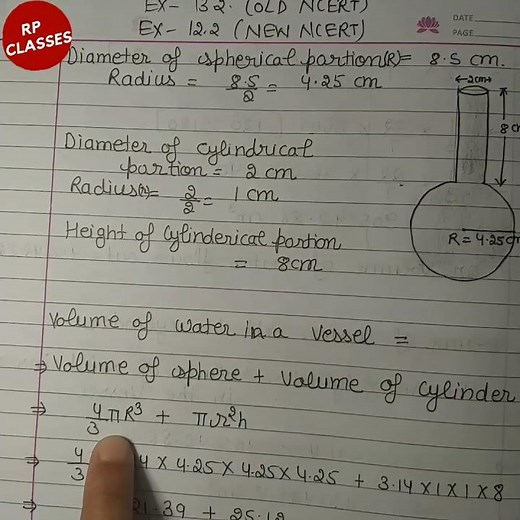 EX- 13.2. (OLD NCERT)
EX- 12.2 (NEW NCERT)
RP
CLASSES
DATE
PAGE
Diameter of spherical partion(R)= 8.5 cm.
Radius = 8.5/2 = 4.25 cm
←2cm→
8cm
Diameter of cylindrical
partion = 2 cm
Radius(r)= 2/2 = 1 cm
R = 4.25cm
Height of Cylinderical partion
= 8cm
Volume of water in a vessel =
⇒ Volume of sphere + Volume of cylinder
⇒ 4/3 πR³ + πr²h
⇒ 4/3 4 × 4.25 × 4.25 × 4.25 + 3.14 × 1 × 1 × 8
⇒ 21.39 + 25.12